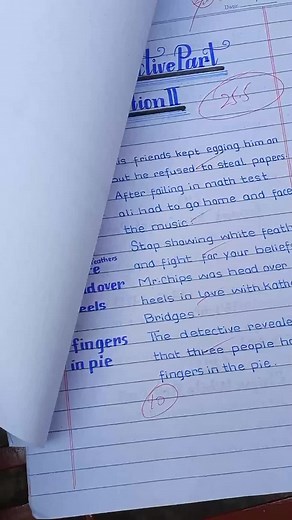 ctive Part
tion II
255
is friends kept egging him on
but he refused to steal papers.
After failing in math test
ali had to go home and face
the music
Stop showing white feath
eathers
and fight for your beliefs
d over
Mr.chips was head over
eels
heels in love with Kathe
Bridges.
fingers
The detective reveale
in pie
that three people ha
fingers in the pie.
10